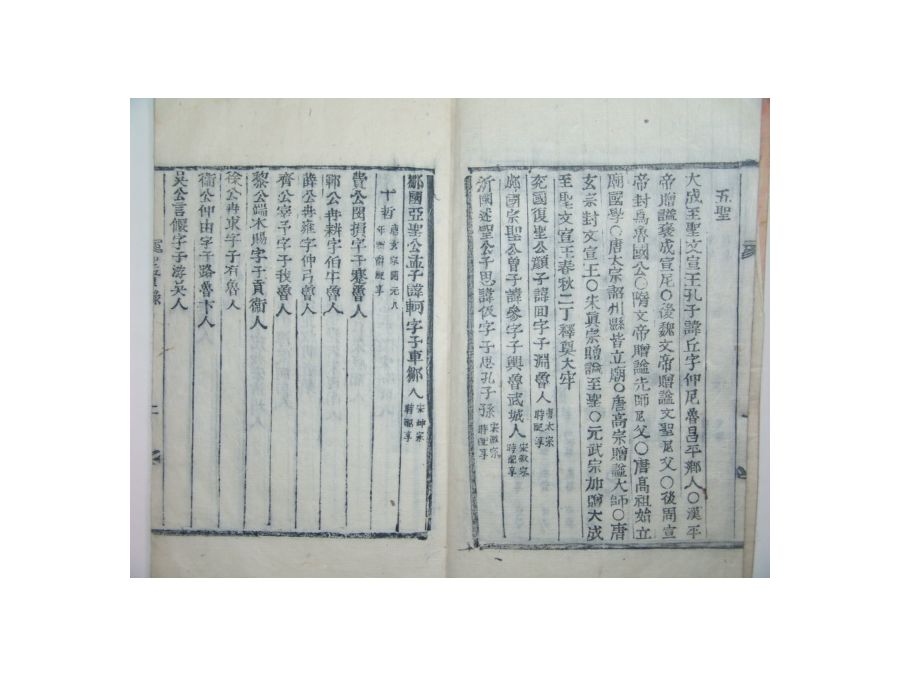 五聖
大成至聖文宣王孔子諱丘字仲尼魯昌平鄉人○漢平
帝贈謚褒成宣尼○後魏文帝贈謚文聖尼父○後周宣
帝封爲魯國公○隋文帝贈謚先師尼父○唐高祖始立
廟國學○唐太宗詔州縣皆立廟○唐高宗贈謚大師○唐
玄宗封文宣王○宋眞宗贈謚至聖○元武宗加贈大成
至聖文宣王春秋二丁釋奠大牢
兖國復聖公顔子諱回字子淵魯人 唐太宗時配享
郕國宗聖公曾子諱參字子輿魯武城人 宋徽宗時配享
沂國述聖公子思諱伋字子思孔子孫 宋徽宗時配享
鄒國亞聖公孟子諱軻字子車鄒人 宋神宗時配享
十哲 唐玄宗開元八年 從享
費公閔損字子騫魯人
鄆公冉耕字伯牛魯人
薛公冉雍字仲弓魯人
齊公宰予字子我魯人
黎公端木賜字子貢衛人
徐公冉求字子有魯人
衛公仲由字子路魯卞人
吳公言偃字子游吳人